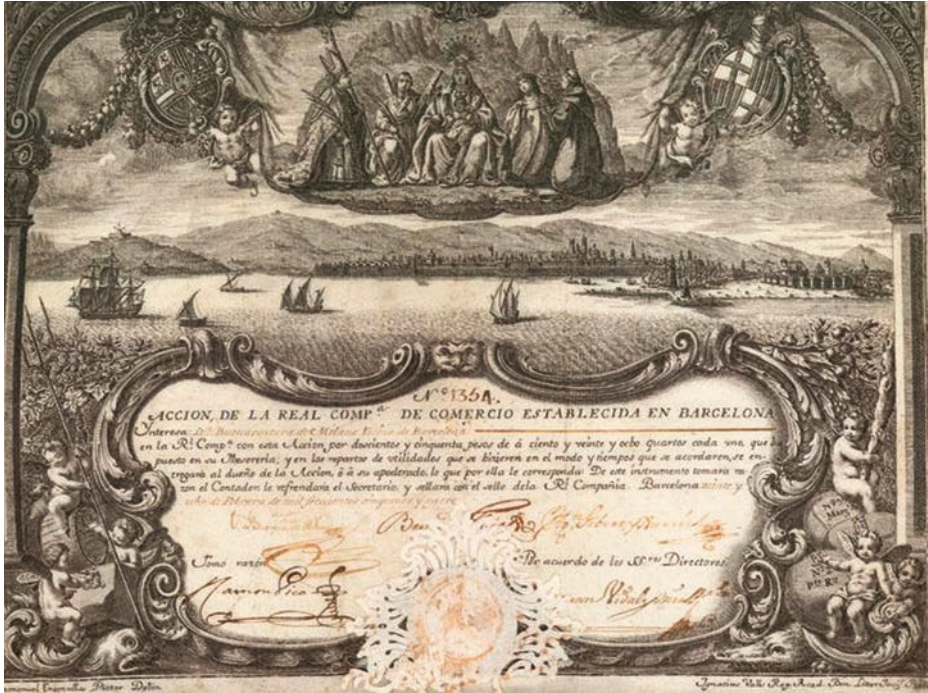 Nº 1354.
ACCION, DE LA REAL COMPª. DE COMERCIO ESTABLECIDA EN BARCELONA
Interesa Dn. Buenaventura de Milans
en la Rl. Compª. con esta Accion, por doscientos y cinquenta pesos de á ciento y veinte y ocho quartos cada uno, que ha
puesto en su Thesoreria; y en los repartos de vtilidades que se hizieren en el modo y tiempos que se acordaren, se en-
tregará al dueño de la Accion, ò à su apoderado, lo que por ella le corresponda: De este instrumento tomará ra-
zon el Contador: le refrendará el Secretario, y sellará con el sello dela Rl. Compañia. Barcelona veinte y
ocho de Febrero de mil
Tomò razon
Por acuerdo de los SSres. Directores.
Ramon Picó
Juan Vidal y
Manuel Tramullas Pictor Delin.
Ignatius Valls Reg. Acad. Bon.